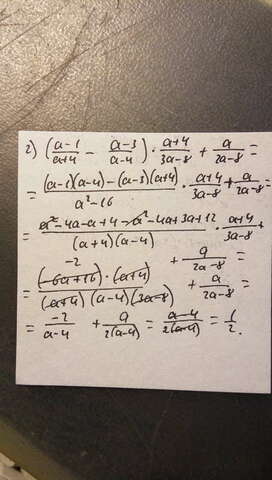 2) ((a-1)/(a+4) - (a-3)/(a-4)) · (a+4)/(3a-8) + a/(2a-8) =
= ((a-1)(a-4) - (a-3)(a+4))/(a²-16) · (a+4)/(3a-8) + a/(2a-8) =
= (a² - 4a - a + 4 - a² - 4a + 3a + 12)/((a+4)(a-4)) · (a+4)/(3a-8) +
+ a/(2a-8)
-2
= ((-6a+16) · (a+4))/((a+4)(a-4)(3a-8)) + a/(2a-8) =
= -2/(a-4) + a/(2(a-4)) = (a-4)/(2(a-4)) = 1/2.